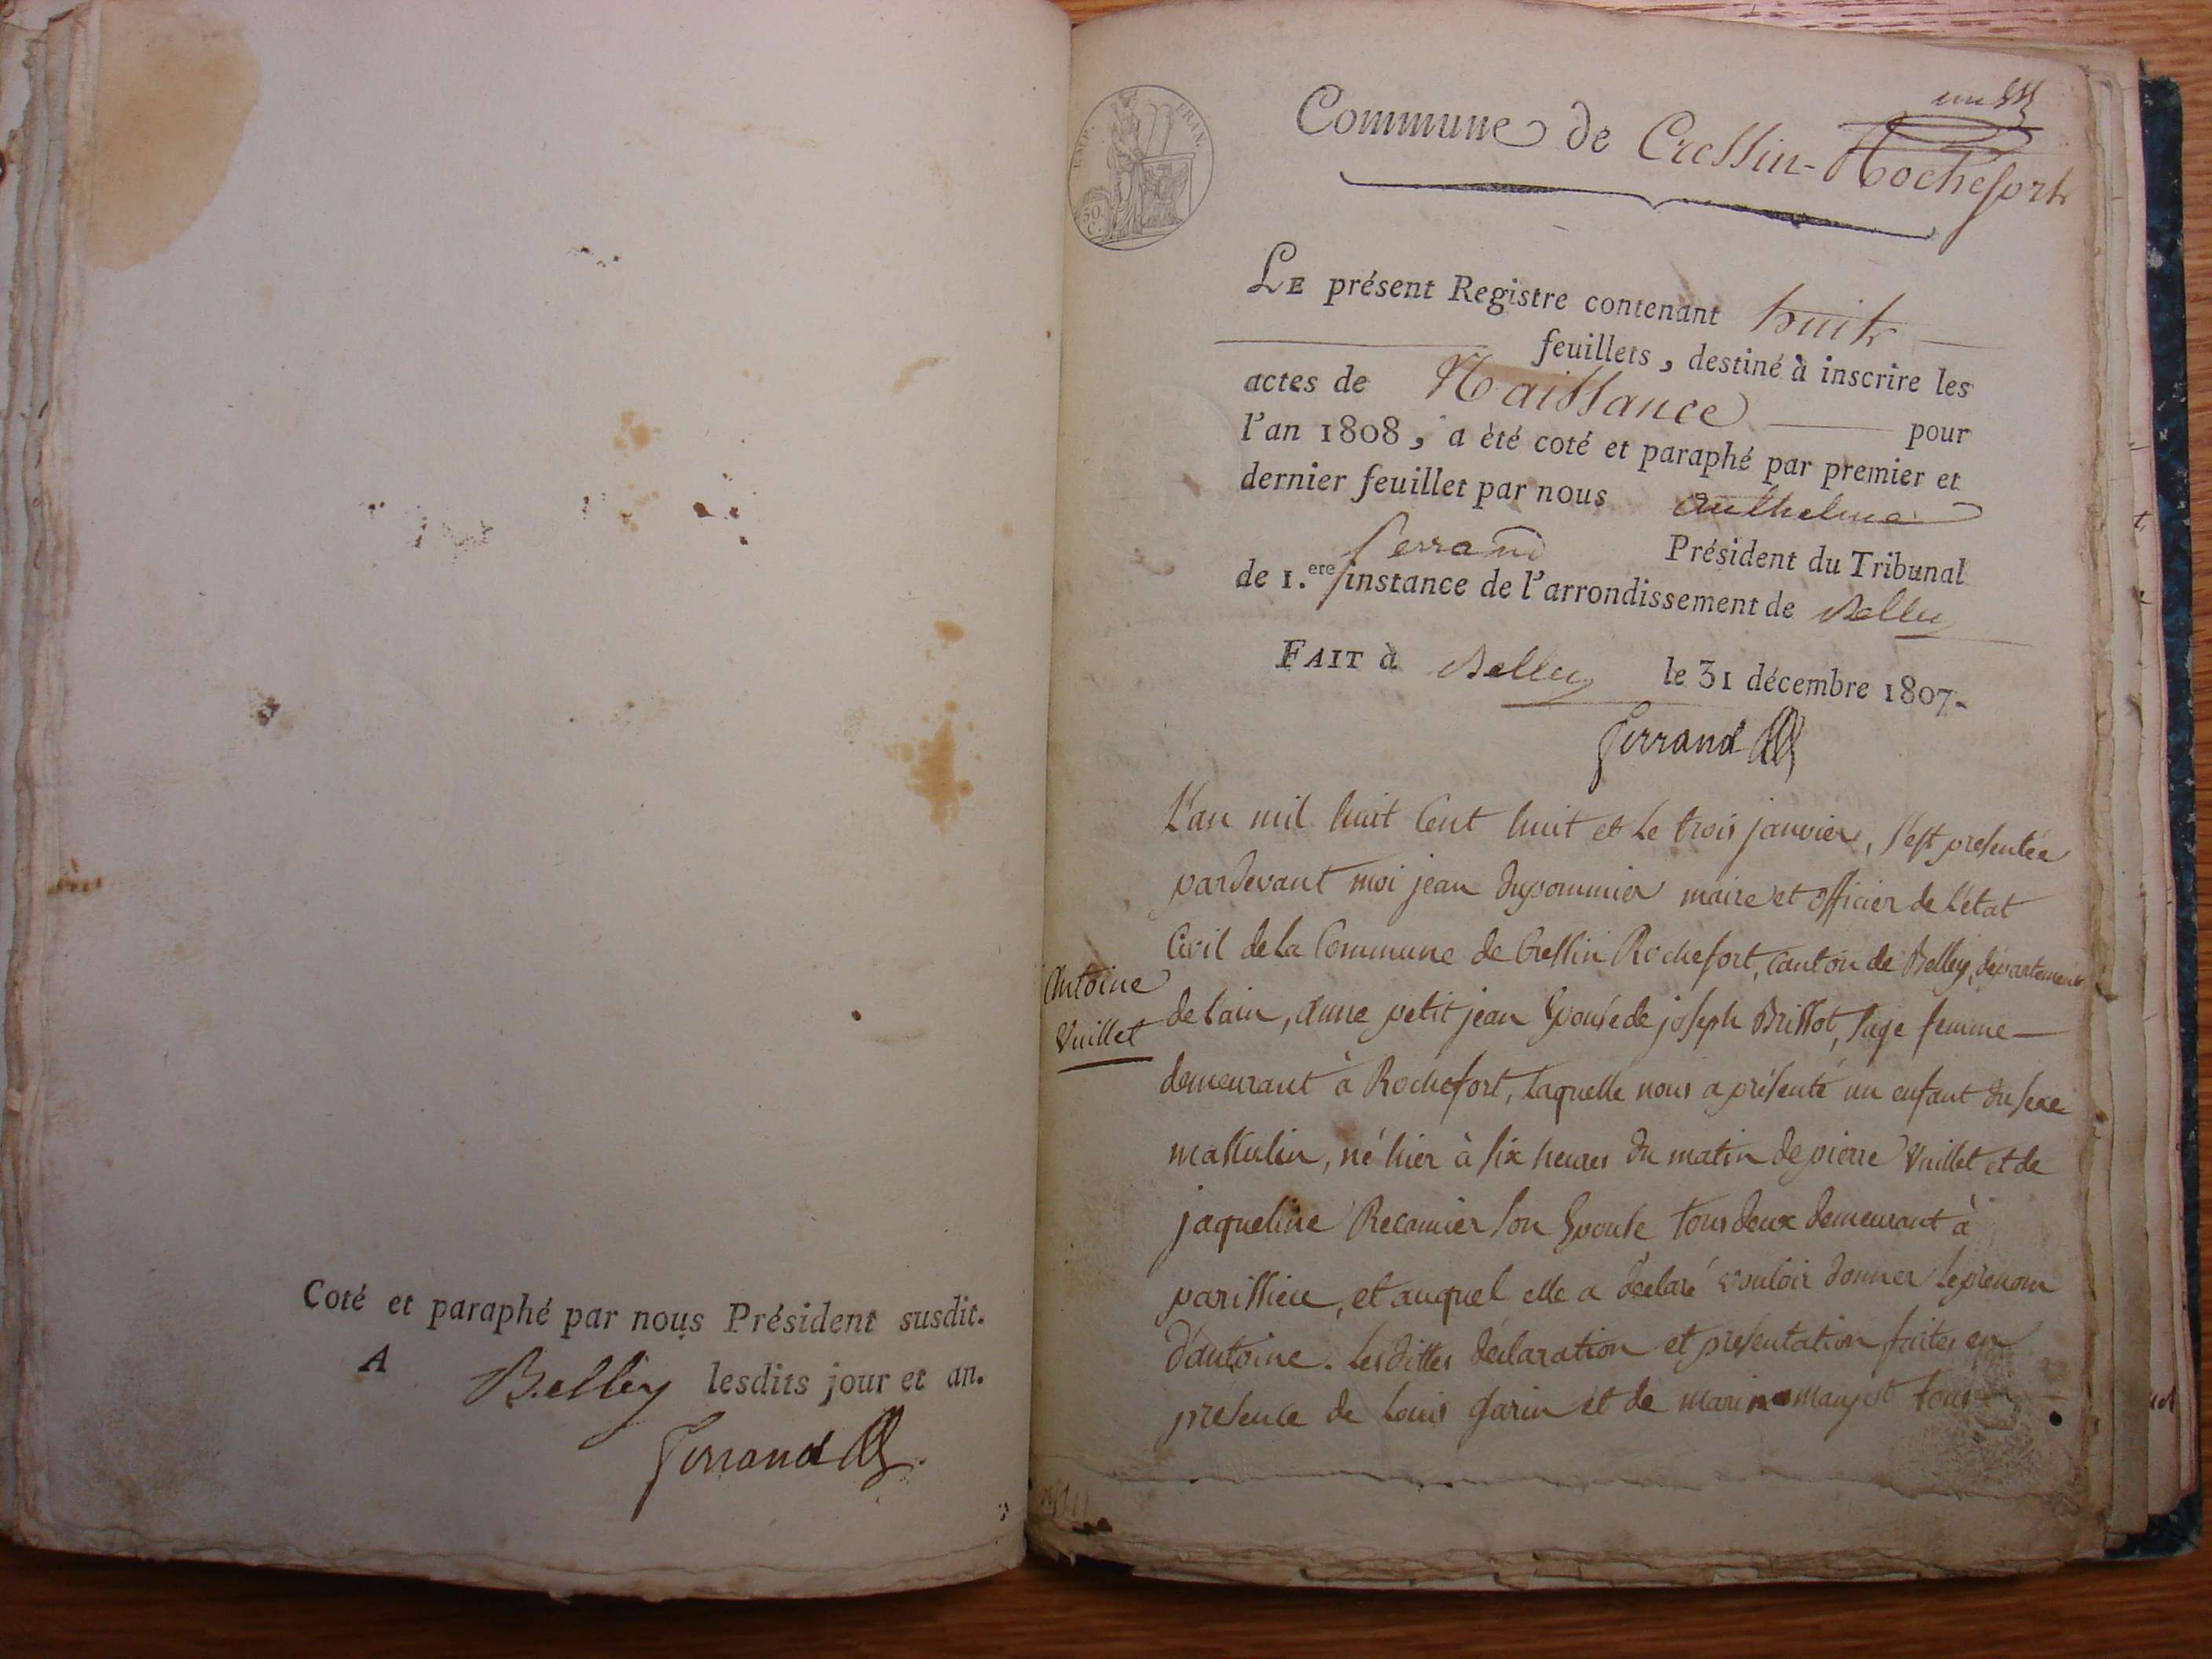 Coté et paraphé par nous Président susdit.
A Belley lesdits jour et an.
Ferrand
un
EMP. FRAN.
50 C.
Commune de Cressin-Rochefort
LE présent Registre contenant huit
feuillets, destiné à inscrire les
actes de Naissance pour
l'an 1808, a èté coté et paraphé par premier et
dernier feuillet par nous anthelme
ferrand Président du Tribunal
de 1.ere instance de l'arrondissement de Belley
FAIT à Belley le 31 décembre 1807.
Ferrand
Antoine
Vuillet
L'an mil huit Cent huit et le trois janvier, s'est presentée
pardevant moi jean dupommier maire et officier de l'état
Civil de la Commune de Cressin Rochefort, canton de Belley, departement
de l'ain, anne petit jean Epouse de joseph Brissot, sage femme
demeurant à Rochefort, laquelle nous a présenté un enfant du sexe
masculin, né hier à six heures du matin de pierre Vuillet et de
jaqueline Recamier son Epouse tous deux demeurant à
parissieu, et auquel elle a déclaré vouloir donner le prenom
d'antoine. lesdittes déclaration et presentation faites en
presence de Louis garin et de marin mangot tous